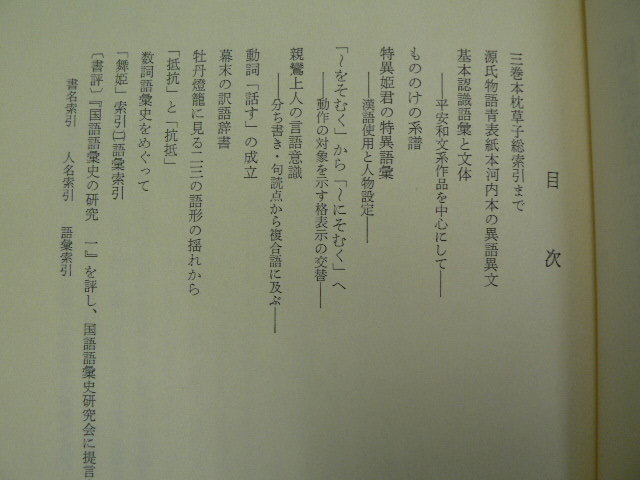 目次
三巻本枕草子総索引まで
源氏物語青表紙本河内本の異語異文
基本認識語彙と文体
――平安和文系作品を中心にして――
もののけの系譜
特異姫君の特異語彙
――漢語使用と人物設定――
「～をそむく」から「～にそむく」へ
――動作の対象を示す格表示の交替――
親鸞上人の言語意識
――分ち書き・句読点から複合語に及ぶ――
動詞「話す」の成立
幕末の訳語辞書
牡丹燈籠に見る二三の語形の揺れから
「抵抗」と「抗抵」
数詞語彙史をめぐって
「舞姫」索引㈡語彙索引
〔書評〕『国語語彙史の研究 一』を評し、国語語彙史研究会に提言
書名索引 人名索引 語彙索引